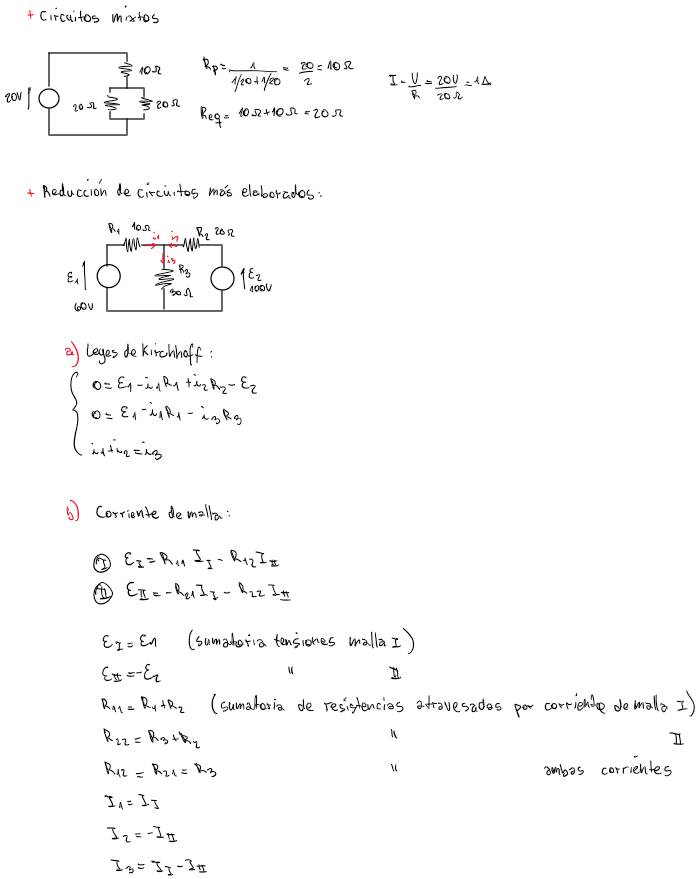 + Circuitos mixtos
20V 10Ω 20Ω 20Ω
Rp = 1/(1/20+1/20) = 20/2 = 10Ω
Req = 10Ω+10Ω = 20Ω
I = V/R = 20V/20Ω = 1A
+ Reducción de circuitos más elaborados:
R1 10Ω i1 i2 R2 20Ω
i3
ε1 R3 ε2
60V 30Ω 100V
a) Leyes de Kirchhoff:
0 = ε1 - i1R1 + i2R2 - ε2
0 = ε1 - i1R1 - i3R3
i1 + i2 = i3
b) Corriente de malla:
I εI = R11 II - R12 III
II εII = -R21 II - R22 III
εI = ε1 (sumatoria tensiones malla I)
εII = -ε2 " II
R11 = R1+R2 (sumatoria de resistencias atravesadas por corriente de malla I)
R22 = R3+R2 " II
R12 = R21 = R3 " ambas corrientes
I1 = II
I2 = -III
I3 = II - III